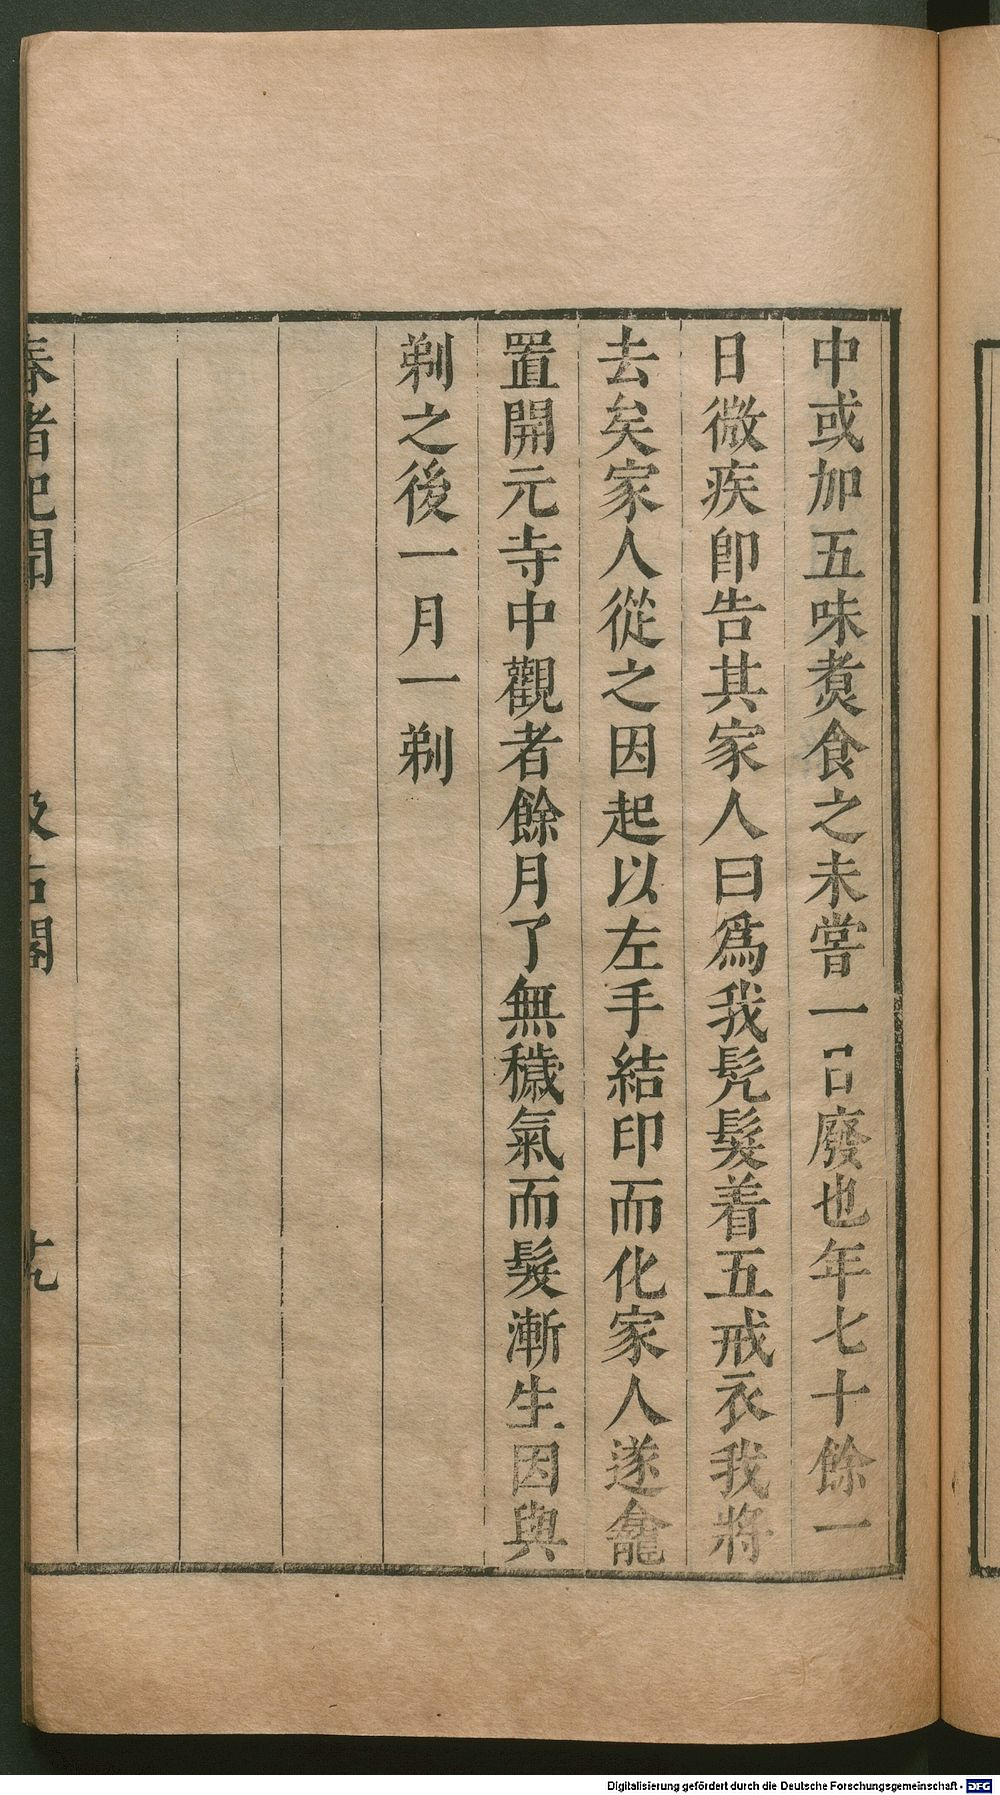 中或加五味煑食之未嘗一日廢也年七十餘一
日微疾卽告其家人曰爲我髠髮着五戒衣我將
去矣家人從之因起以左手結印而化家人遂龕
置開元寺中觀者餘月了無穢氣而髮漸生因與
剃之後一月一剃
春渚紀聞
汲古閣
Digitalisierung gefördert durch die Deutsche Forschungsgemeinschaft - DFG